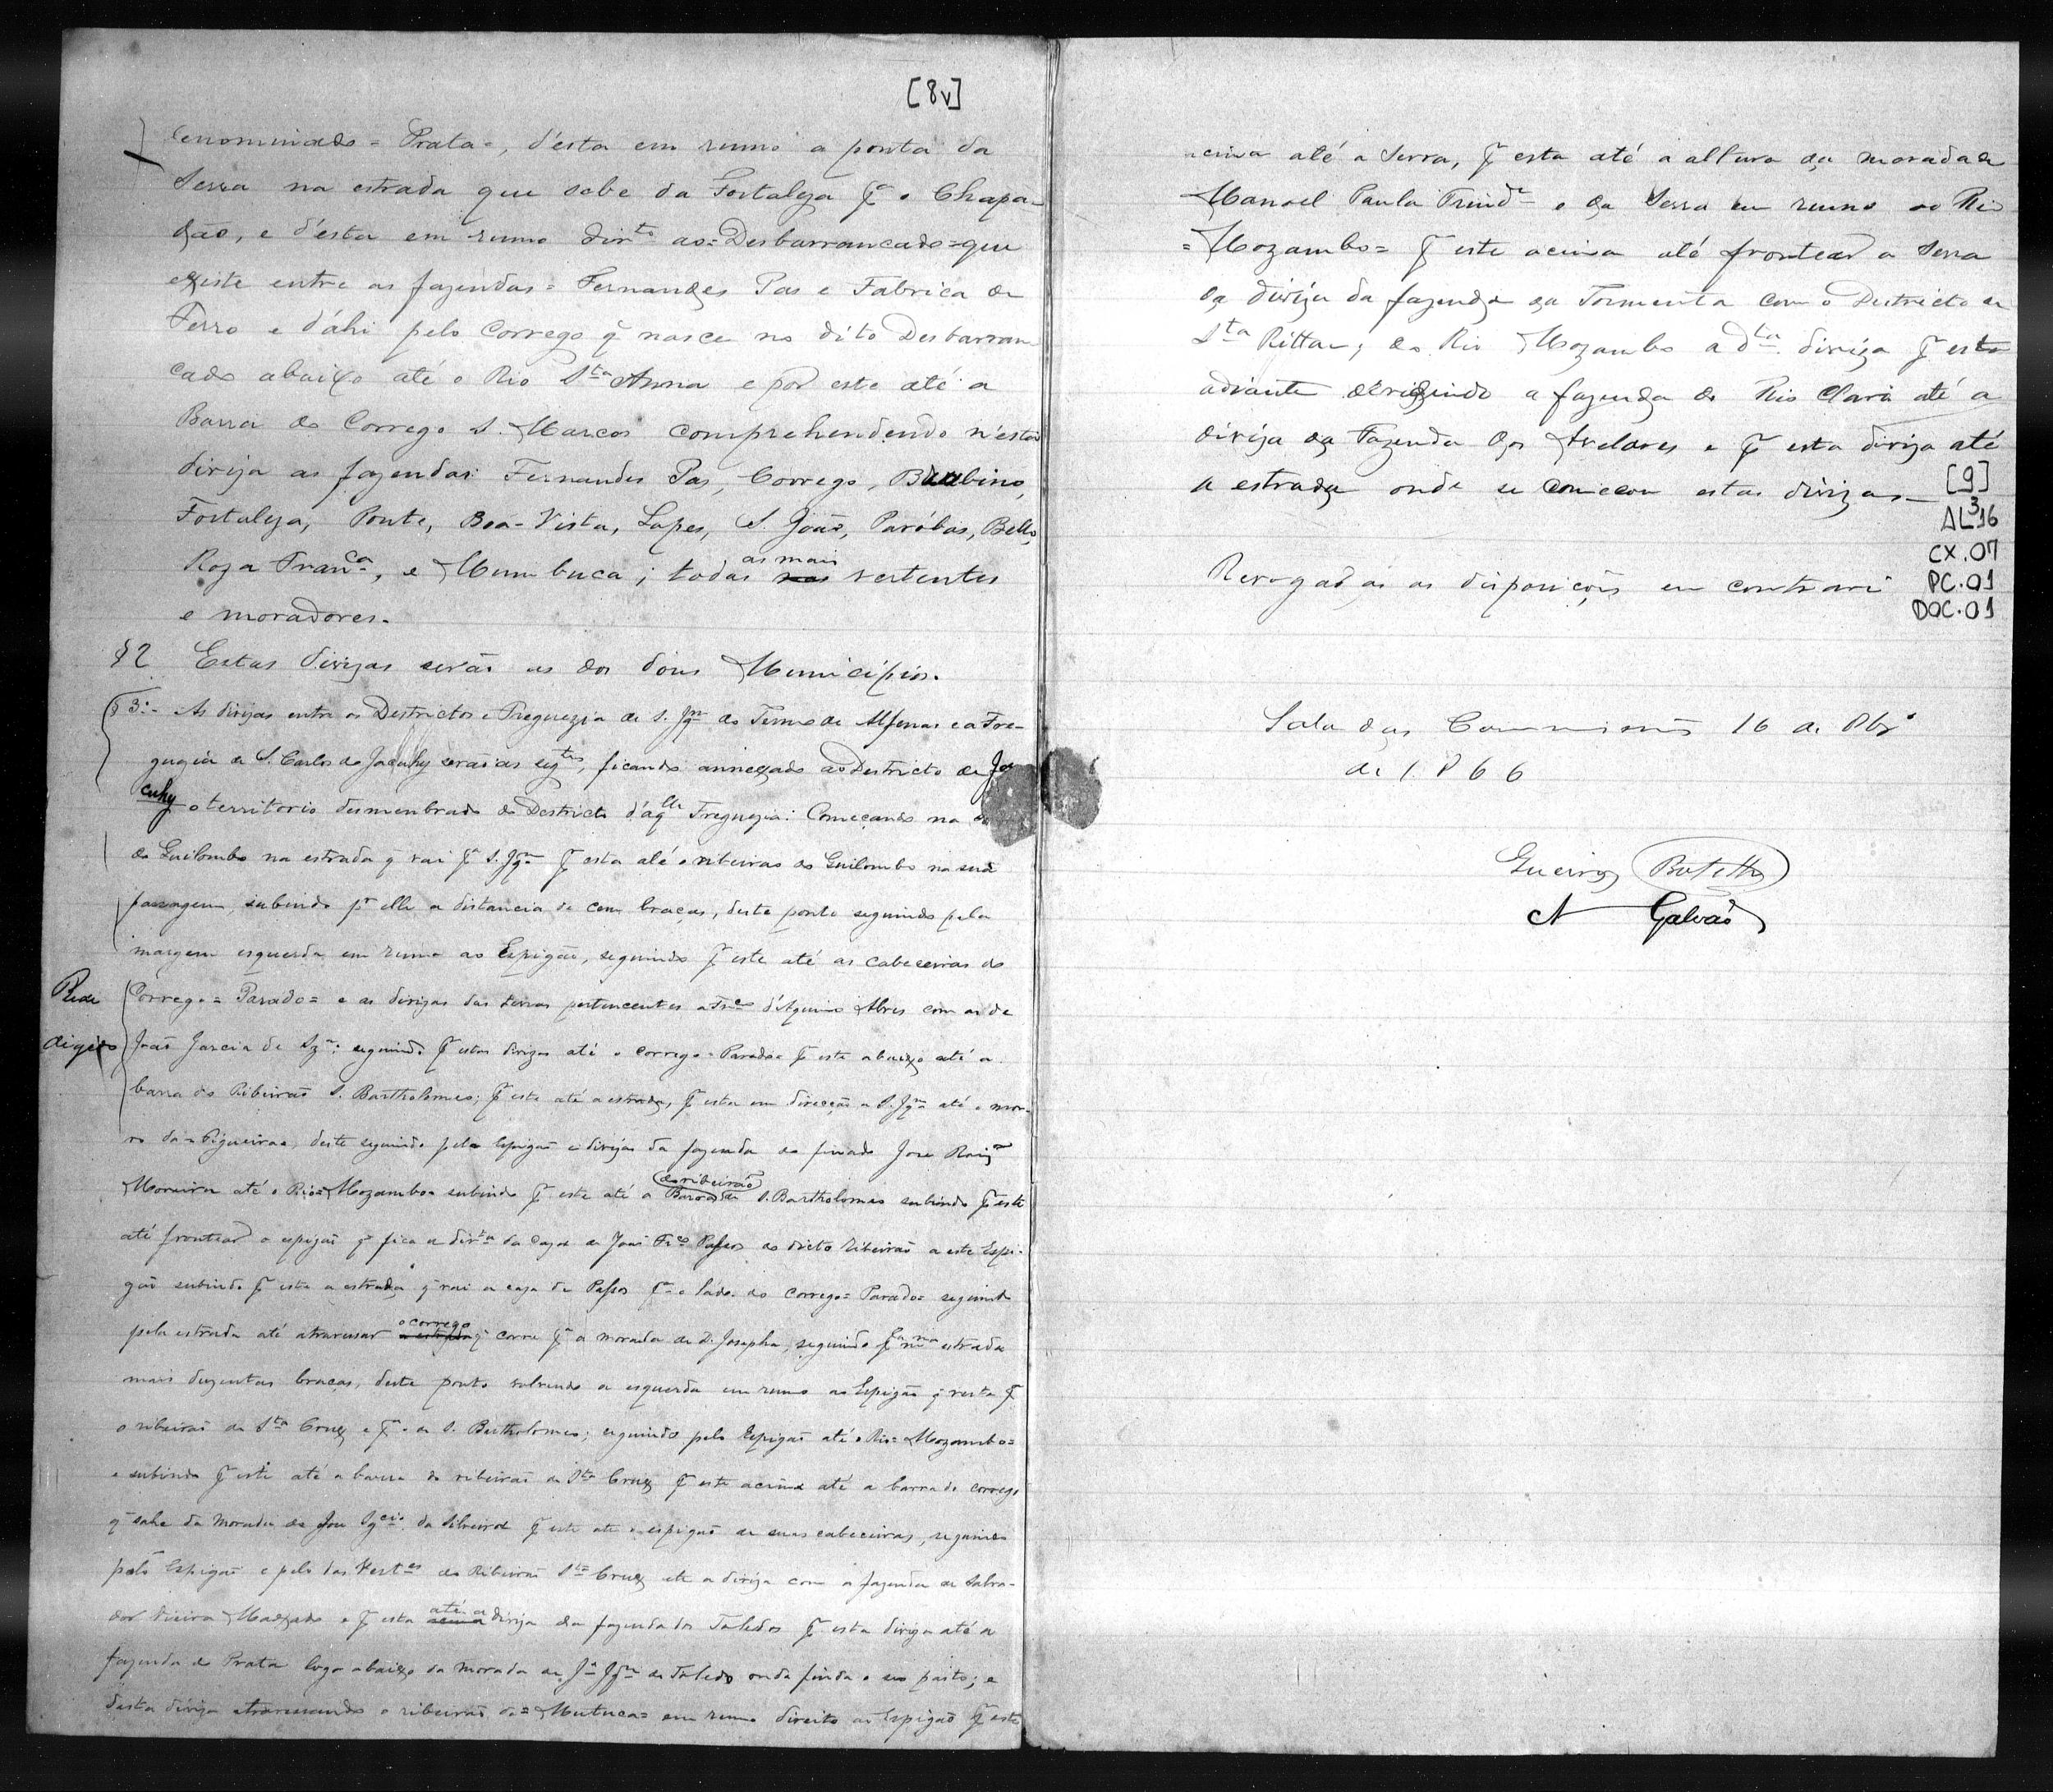 [8v]
denominado = Prata =, d'esta em rumo a ponta da
Serra na estrada que sobe da Fortaleza pª o Chapa-
dão, e d'esta em rumo dirto ao = Desbarrancado = que
existe entre as fazendas = Fernandes Pas e Fabrica de
Ferro e d'áhi pelo Corrego q̃ nasce no dito Desbarran-
cado abaixo até o Rio Sta Anna e por este até a
Barra do Corrego S. Marcos comprehendendo n'esta
diviza as fazendas: Fernandes Pas, Corrego, Baubino,
Fortaleza, Ponte, Boa-Vista, Lapes, S. João, Paróbas, Bello,
Roza Franca, e Mumbuca; todas as mais vertentes
e moradores.
§ 2 Estas divizas serão as dos dous Municipios.
§ 3º - As divizas entre os Destrictos e Freguezia de S. Jqm do Termo de Alfenas e a Fre-
guezia de S. Carlos do Jacuhy serão as segtes, ficando annexado ao Destricto de Ja
cuhy o territorio desmembrado do Destricto d'aqlla Freguezia: Começando na
do Quilombo na estrada q̃ vai pª S. Jqm pr esta até o ribeirão do Quilombo na sua
passagem, subindo pr elle a distancia de cem braças, deste ponto seguindo pela
margem esquerda em rumo ao Espigão, seguindo pr este até as cabeceiras do
Rede Corrego = Parado = e as divizas das terras pertencentes a Frco d'Aquino Alves com as de
digido João Garcia de Sza; seguindo pr estas divizas até o corrego = Parado = pr este abaixo até a
barra do Ribeirão S. Bartholomeo; pr este até a estrada, pr esta em direcção a S. Jqm até o mor-
ro da = Figueira =, deste seguindo pelo espigão e divizas da fazenda do finado Jose Roiz
Moreira até o Rio = Mozambo = subindo pr este até a Barra do ribeirão de S. Bartholomeo subindo pr este
até frontear o espigão q̃ fica a dirta da caza de João Frco Passos do dicto ribeirão a este Espi-
gão subindo pr este a estrada q̃ vai a caza de Passos pª o lado do corrego = Parado = seguindo
pela estrada até atravessar o corrego q̃ corre pª a morada de D. Josepha, seguindo pla ma estrada
mais duzentas braças, deste ponto volvendo a esquerda em rumo ao Espigão q̃ verte pª
o ribeirão de Sta Cruz e pª o de S. Bartholomeo; seguindo pelo Espigão até o Rio = Mozambo =
e subindo pr este até a barra do ribeirão de Sta Cruz pr este acima até a barra do corrego
q̃ sahe da morada de Jose Igcio da Silveira pr este até o espigão de suas cabeceiras, seguindo
pelo Espigão e pelo das Vertes do Ribeirão Sta Cruz até a diviza com a fazenda de Salva-
dor Vieira Machado e pr esta até a diviza da fazenda dos Toledos pr esta diviza até a
fazenda do Prata logo abaixo da morada de Je Jqm de Toledo onde finda o seo pasto; e
desta diviza atravessando o ribeirão da = Mutuca = em rumo direito ao Espigão pr este
acima até a Serra, pr esta até a altura da morada de
Manoel Paula Trinde e da Serra em rumo ao Rio
= Mozambo = pr este acima até frontear a Serra
da diviza da fazenda da Tormenta com o Destricto de
Sta Ritta; do Rio Mozambo a dta diviza pr esta
adiante dirigindo a fazenda do Rio Claro até a
diviza da Fazenda dos Avelares e pr esta diviza até
a estrada onde se começou estas divizas -
[9]
AL³16
CX.07
PC.01
DOC.01
Revogadas as disposições em contrario
Sala das Commissões 16 de 8bro
de 1866
Queiroz Botelho
N Galvão